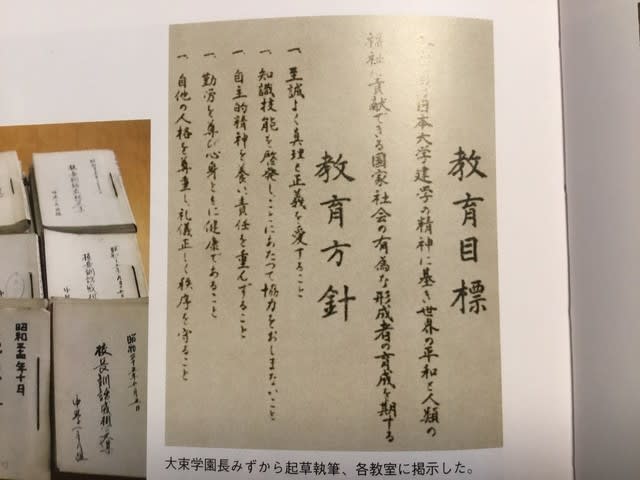 教育目標
日本大学建学の精神に基き世界の平和と人類の
福祉に貢献できる国家社会の有為な形成者の育成を期する
教育方針
一、至誠よく真理と正義を愛すること
一、知識技能を啓発しことにあたつて協力をおしまないこと
一、自主的精神を養い責任を重んずること
一、勤労を尊び心身ともに健康であること
一、自他の人格を尊重し、礼儀正しく秩序を守ること
大束学園長みずから起草執筆、各教室に掲示した。
校長訓話
昭和
校長訓話感想